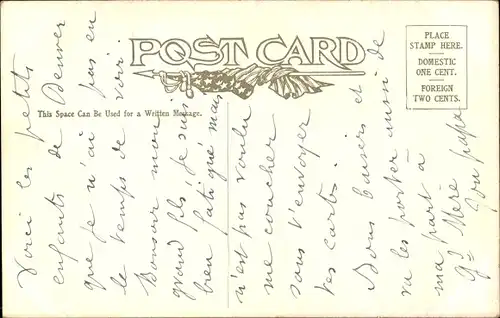 POST CARD
This Space Can Be Used for a Written Message.
PLACE
STAMP HERE.
DOMESTIC
ONE CENT.
FOREIGN
TWO CENTS.
Voici les petits
enfants de Denver
que je n'ai pas eu
le temps de voir.
Bonsoir mon
grand fils, je suis
bien fatigué mais
n'est pas voulu
me coucher
sans t'envoyer
tes cartes.
Bons baisers et
va les porter aussi de
ma part a
Gd Mere
Ton papa